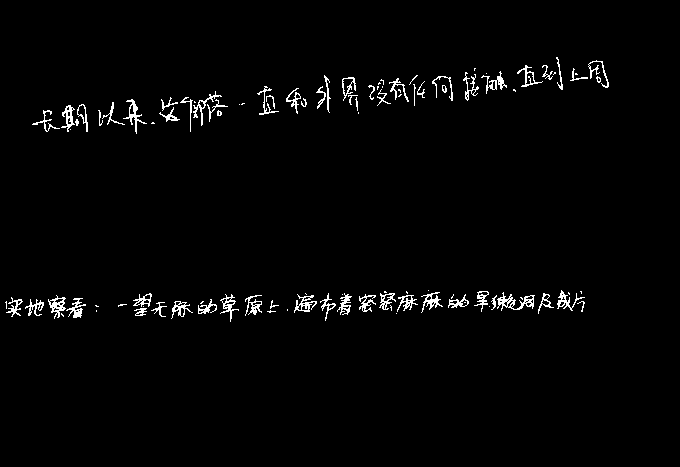 长期以来、该部落一直和外界没有任何接触、直到上周
实地察看：一望无际的草原上、遍布着密密麻麻的旱獭洞及成片